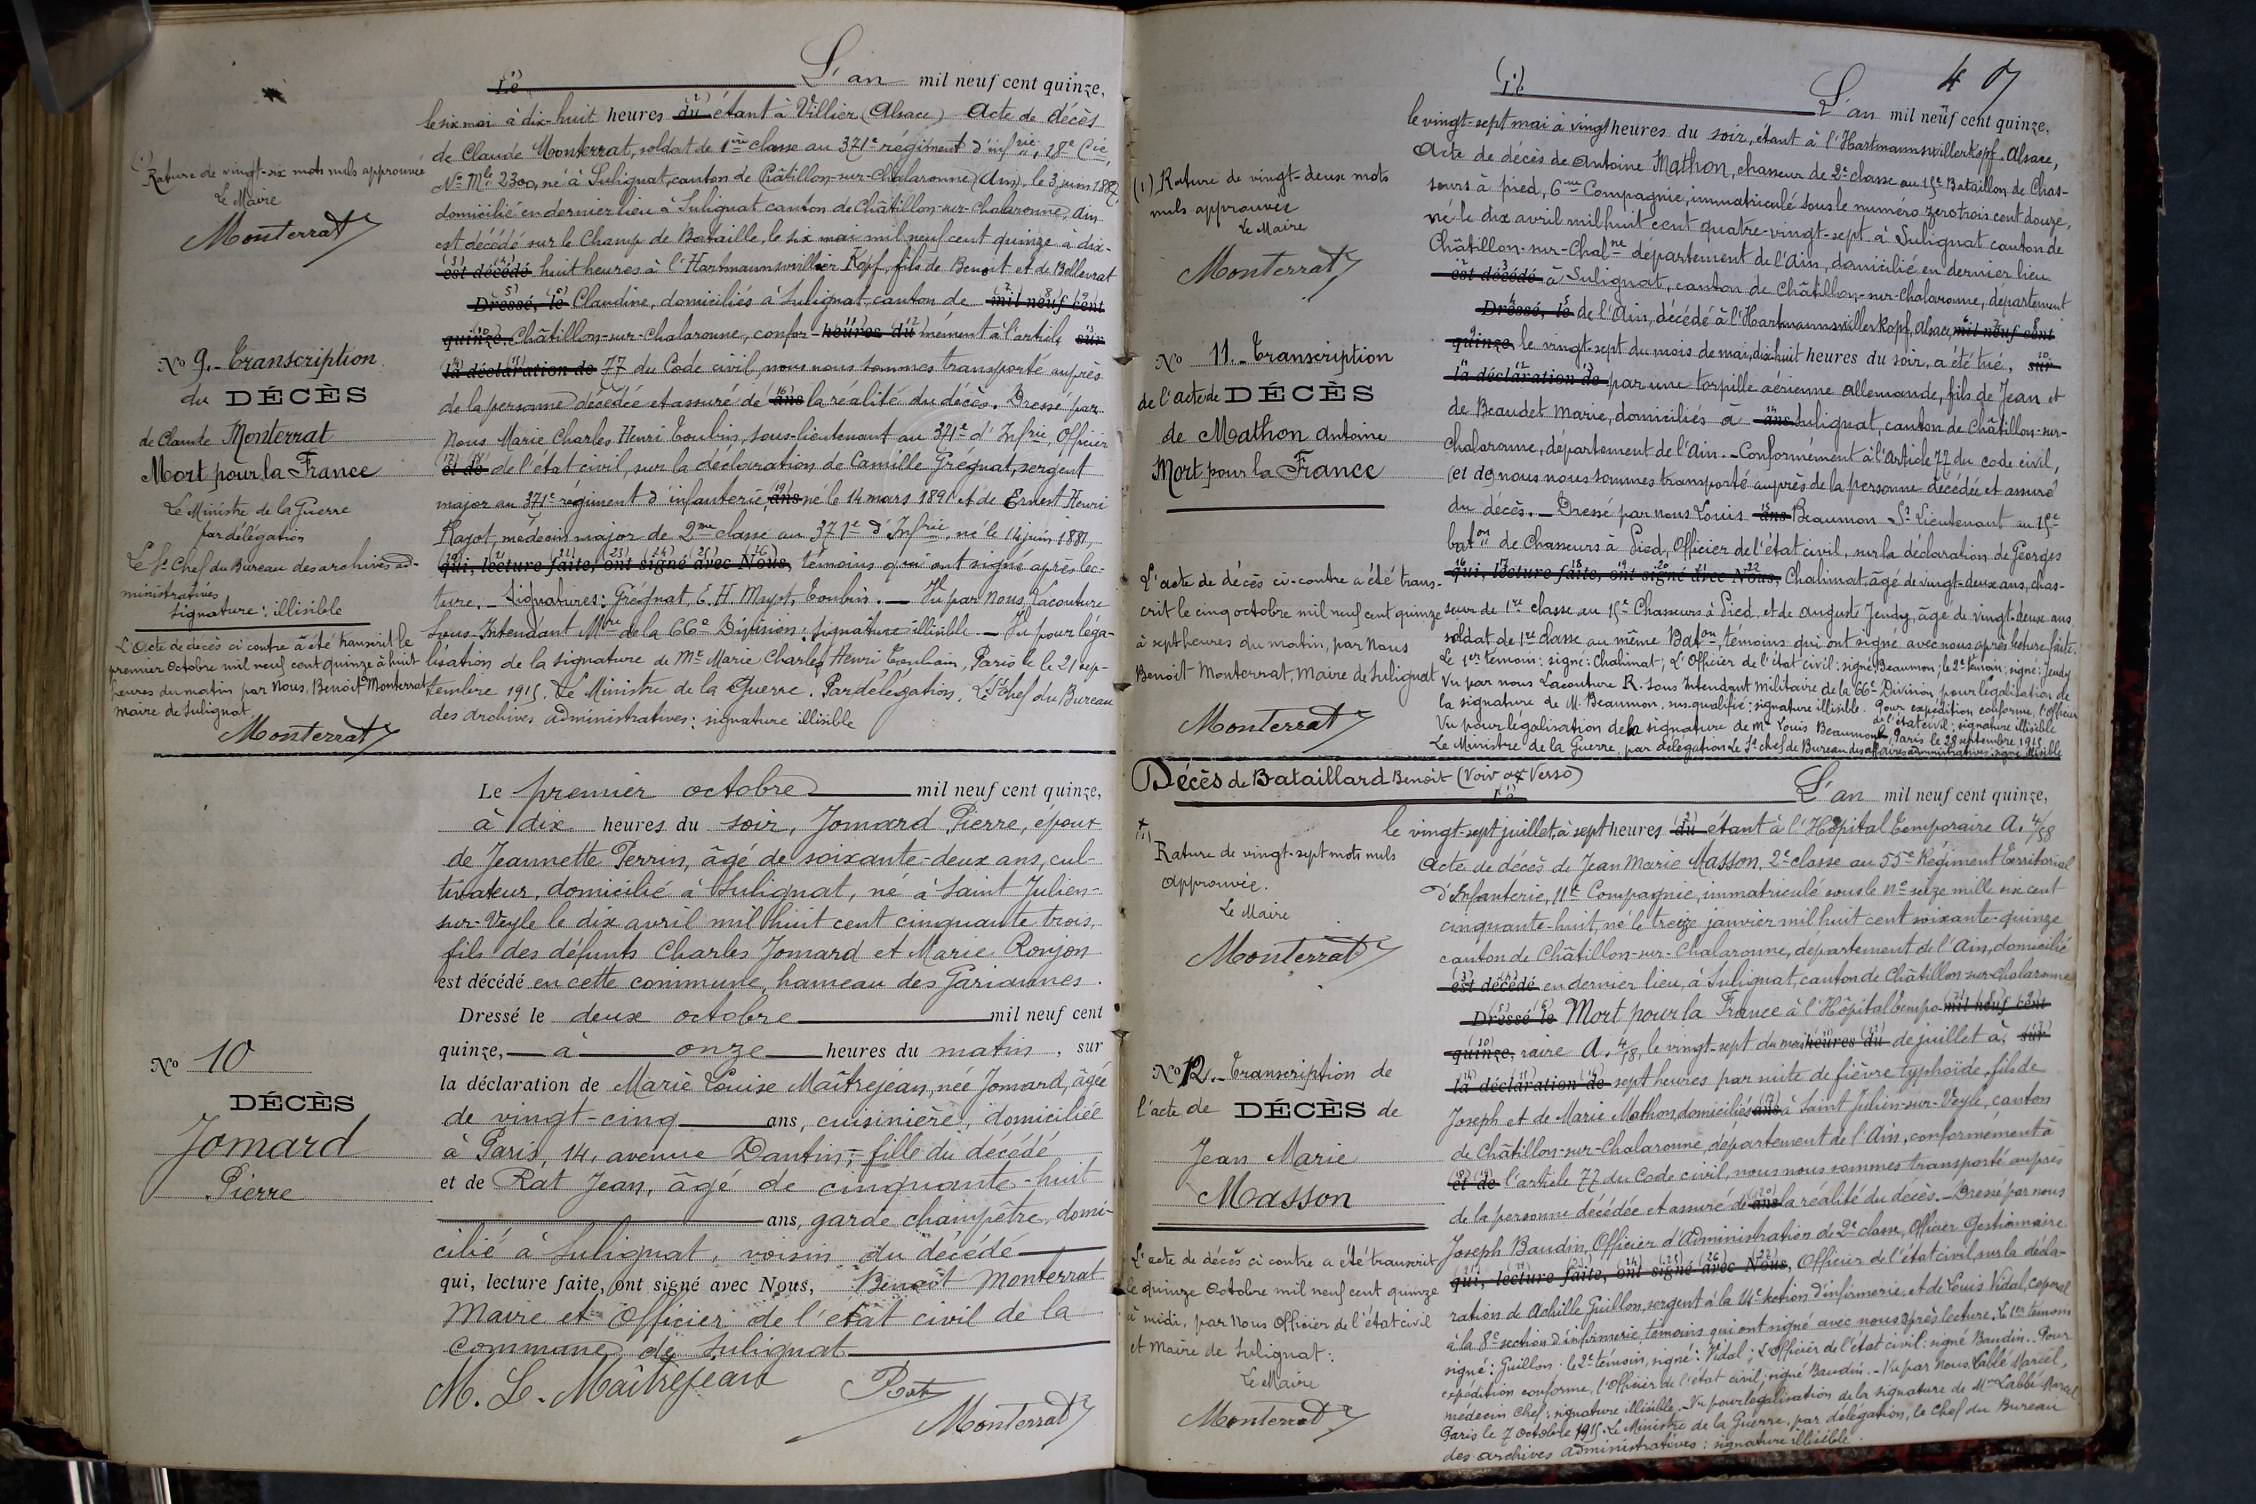 Le L'an mil neuf cent quinze,
le six mai à dix-huit heures du étant à Villier (Alsace) Acte de décès
de Claude Monterrat, soldat de 1ère classe au 371e régiment d'infrie, 18e Cie,
No Mle 2300, né à Sulignat, canton de Châtillon-sur-Chalaronne (Ain), le 3 juin 1882,
domicilié en dernier lieu à Sulignat canton de Châtillon-sur-Chalaronne, Ain
est décédé sur le Champ de Bataille, le six mai mil neuf cent quinze à dix-
est décédé huit heures à l'Hartmannswillier Kopf, fils de Benoit et de Bellevrat
Dressé, le Claudine, domiciliés à Sulignat, canton de mil neuf cent
quinze, Châtillon-sur-Chalaronne, confor- heures du mément à l'article sur
la déclaration de 77 du Code civil, nous nous sommes transporté auprès
de la personne décédée et assuré de ans la réalité du décès. Dressé par
Nous Marie Charles Henri Toubin, sous-lieutenant au 371e d'Infrie, Officier
et de de l'état civil, sur la déclaration de Camille Grégnat, sergent
major au 371e régiment d'infanterie, ans né le 14 mars 1891 et de Ernest Henri
médecin major de 2me classe au 371e d'Infrie, né le 14 juin 1881,
qui, lecture faite, ont signé avec Nous, témoins qui ont signé après lec-
ture. _ Signatures: Grégnat, E. H. Toubin. _ Vu par Nous, Lacouture
Sous-Intendant Mre de la 66e Division: signature illisible _ Vu pour léga-
lisation de la signature de Mr Marie Charles Henri Toubin, Paris le le 21 sep-
tembre 1915. Le Ministre de la Guerre. Par délégation. Le Sschef du Bureau
des archives administratives: signature illisible
Rature de vingt-six mots nuls approuvée
Le Maire
Monterrat
No 9. _ Transcription
du DÉCÈS
de Claude Monterrat
Mort pour la France
Le Ministre de la Guerre
par délégation
Le Ss Chef du Bureau des archives ad-
ministratives
Signature: illisible
L'Acte de décès ci contre à été transcrit le
premier Octobre mil neuf cent quinze à huit
heures du matin par Nous, Benoit Monterrat
Maire de Sulignat
Monterrat
Le premier octobre mil neuf cent quinze,
à dix heures du soir, Jomard Pierre, époux
de Jeannette Perrin, âgé de soixante-deux ans, cul-
tivateur, domicilié à Sulignat, né à Saint Julien-
sur-Veyle le dix avril mil huit cent cinquante trois,
fils des défunts Charles Jomard et Marie Ronjon
est décédé en cette commune, hameau des Gariannes.
Dressé le deux octobre mil neuf cent
quinze, à onze heures du matin, sur
la déclaration de Marie Louise Maîtrejean, née Jomard, âgée
de vingt-cinq ans, cuisinière, domiciliée
à Paris, 14, avenue Dantin, fille du décédé
et de Rat Jean, âgé de cinquante-huit
ans, garde champêtre, domi-
cilié à Sulignat, voisin du décédé
qui, lecture faite, ont signé avec Nous, Benoit Monterrat
Maire et Officier de l'etat civil de la
commune de Sulignat
M. L. Maîtrejean Rat
Monterrat
No 10
DÉCÈS
Jomard
Pierre
407
Le L'an mil neuf cent quinze,
le vingt-sept mai à vingt heures du soir, étant à l'Hartmannswillerkopf Alsace,
Acte de décès de Antoine Mathon, chasseur de 2e classe au 15e Bataillon de Chas-
seurs à pied, 6me Compagnie, immatriculé sous le numéro zéro trois cent douze,
né le dix avril mil huit cent quatre-vingt-sept à Sulignat canton de
Châtillon-sur-Chalne département de l'Ain, domicilié en dernier lieu
est décédé à Sulignat, canton de Châtillon-sur-Chalaronne, département
Dressé, le de l'Ain, décédé à l'Hartmannswillerkopf, Alsace, mil neuf cent
quinze, le vingt-sept du mois de mai, dix-huit heures du soir, a été tué, sur
la déclaration de par une torpille aérienne allemande, fils de Jean et
de Beaudet Marie, domiciliés à ans Sulignat, canton de Châtillon-sur-
Chalaronne, département de l'Ain. _ Conformément à l'Article 77 du code civil,
(et de) nous nous sommes transporté auprès de la personne décédée et assuré
du décès. _ Dressé par nous Louis ans Beaumon Ss Lieutenant au 15e
baton de Chasseurs à Pied, Officier de l'état civil, sur la déclaration de Georges
qui, lecture faite, ont signé avec Nous, Chalimat, âgé de vingt-deux ans, chas-
seur de 1re classe au 15e Chasseurs à Pied, et de Auguste Jendy, âgé de vingt-deux ans
soldat de 1re classe au même Baton, témoins qui ont signé avec nous après lecture faite.
Le 1er témoin: signé: Chalimat; L'Officier de l'état civil: signé Beaumon; le 2e témoin: signé: Jendy
Vu par nous Lacouture R. Sous Intendant militaire de la 66e Division pour légalisation de
la signature de M. Beaumon, sus-qualifié: signature illisible. Pour expédition conforme, l'Officier
de l'état civil: signature illisible
Vu pour légalisation de la signature de Mr Louis Beaumon, Paris le 28 septembre 1915
Le Ministre de la Guerre, par délégation Le Ss chef de Bureau des affaires administratives: signé illisible
(1) Rature de vingt-deux mots
nuls approuvée
Le Maire
Monterrat
No 11. _ Transcription
de l'acte de DÉCÈS
de Mathon Antoine
Mort pour la France
L'acte de décès ci-contre a été trans-
crit le cinq octobre mil neuf cent quinze
à sept heures du matin, par Nous
Benoit Monterrat, Maire de Sulignat
Monterrat
Décès de Bataillard Benoit (Voir au Verso)
Le L'an mil neuf cent quinze,
le vingt-sept juillet, à sept heures du étant à l'Hôpital Temporaire A. 4/58
Acte de décès de Jean Marie Masson, 2e classe au 55e Régiment Territorial
d'Infanterie, 11e Compagnie, immatriculé sous le No seize mille six cent
cinquante-huit, né le treize janvier mil huit cent soixante-quinze
canton de Châtillon-sur-Chalaronne, département de l'Ain, domicilié
est décédé en dernier lieu, à Sulignat, canton de Châtillon-sur-Chalaronne
Dressé le Mort pour la France à l'Hôpital tempo- mil neuf cent
quinze, raire A. 4/58, le vingt-sept du mois heures du de juillet à, sur
la déclaration de sept heures par suite de fièvre typhoïde, fils de
Joseph et de Marie Mathon, domiciliés ans à Saint Julien-sur-Veyle, canton
de Châtillon-sur-Chalaronne, département de l'Ain, conformément à
et de l'article 77 du Code civil, nous nous sommes transporté auprès
de la personne décédée et assuré de ans la réalité du décès. _ Dressé par nous
Joseph Baudin, Officier d'Administration de 2e classe, Officier Gestionnaire
qui, lecture faite, ont signé avec Nous, Officier de l'état civil, sur la décla-
ration de Achille Guillon, sergent à la 14e section d'infirmerie, et de Louis Vidal, caporal
à la 8e section d'infirmerie, témoins qui ont signé avec nous après lecture. Le 1er témoin
signé: Guillon. Le 2e témoin, signé: Vidal; L'Officier de l'état civil: signé Baudin. Pour
expédition conforme, l'Officier de l'état civil, signé Baudin. _ Vu par Nous, Labbé Marcel,
médecin chef: signature illisible. Vu pour légalisation de la signature de Mr Labbé Marcel
Paris le 7 octobre 1915. Le Ministre de la Guerre, par délégation, le Chef du Bureau
des archives administratives: signature illisible.
(1) Rature de vingt-sept mots nuls
Approuvée.
Le Maire
Monterrat
No 12. _ Transcription de
l'acte de DÉCÈS de
Jean Marie
Masson
L'acte de décès ci contre a été transcrit
le quinze Octobre mil neuf cent quinze
à midi, par Nous Officier de l'état civil
et Maire de Sulignat:
Le Maire
Monterrat